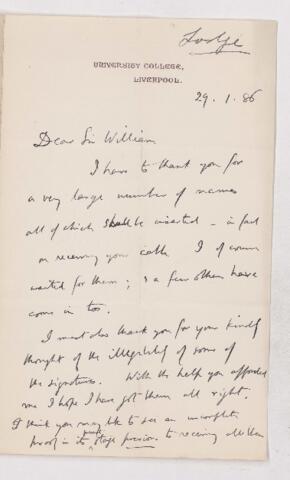 Lodge
UNIVERSITY COLLEGE,
LIVERPOOL.
29.1.86
Dear Sir William
I have to thank you for
a very large number of names
all of which shall be inserted - in fact
on receiving your cable I of course
waited for them; & a few others have
come in too.
I must also thank you for your kindly
thought of the illegibility of some of
the signatures. With the help you afforded
me I hope I have got them all right.
I think you may like to see an incomplete
proof in its stage previous to receiving